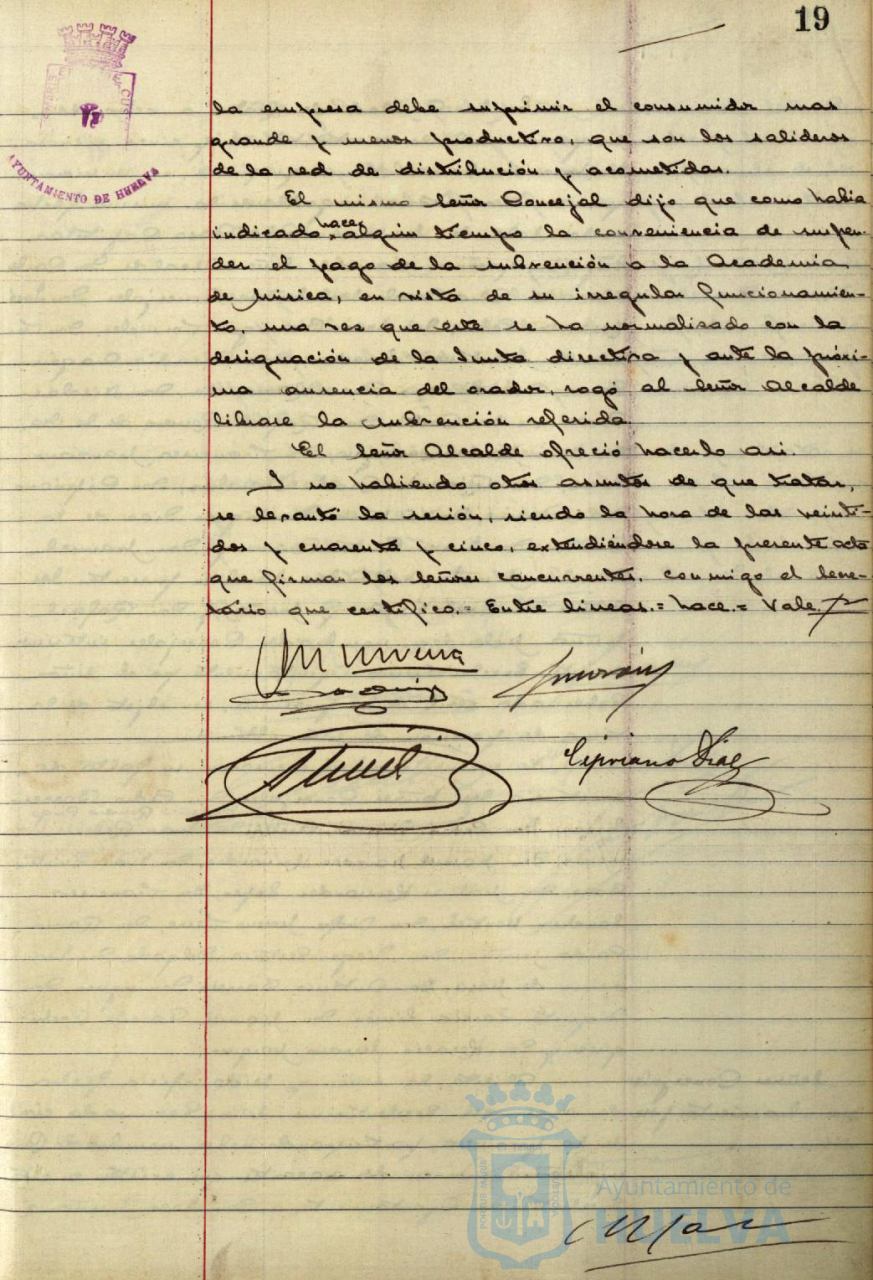 19
AYUNTAMIENTO DE HUELVA
la empresa debe suprimir el consumidor mas
grande y menos productivo, que son los salideros
de la red de distribución y acometidas.
El mismo Señor Concejal dijo que como habia
hace
indicado algún tiempo la conveniencia de suspen-
der el pago de la subvención a la Academia
de Música, en vista de su irregular funcionamien-
to, una vez que este se ha normalizado con la
designación de la Junta directiva y ante la próxi-
ma ausencia del orador, rogó al Señor Alcalde
librase la subvención referida.
El Señor Alcalde ofreció hacerlo asi.
Y no habiendo otros asuntos de que tratar,
se levantó la sesión, siendo la hora de las veinti-
dos y cuarenta y cinco, extendiéndose la presente acta
que firman los Señores concurrentes, conmigo el Secre-
tario que certifico.= Entre lineas.= hace.= Vale.
Cipriano Díaz
Ayuntamiento de
HUELVA